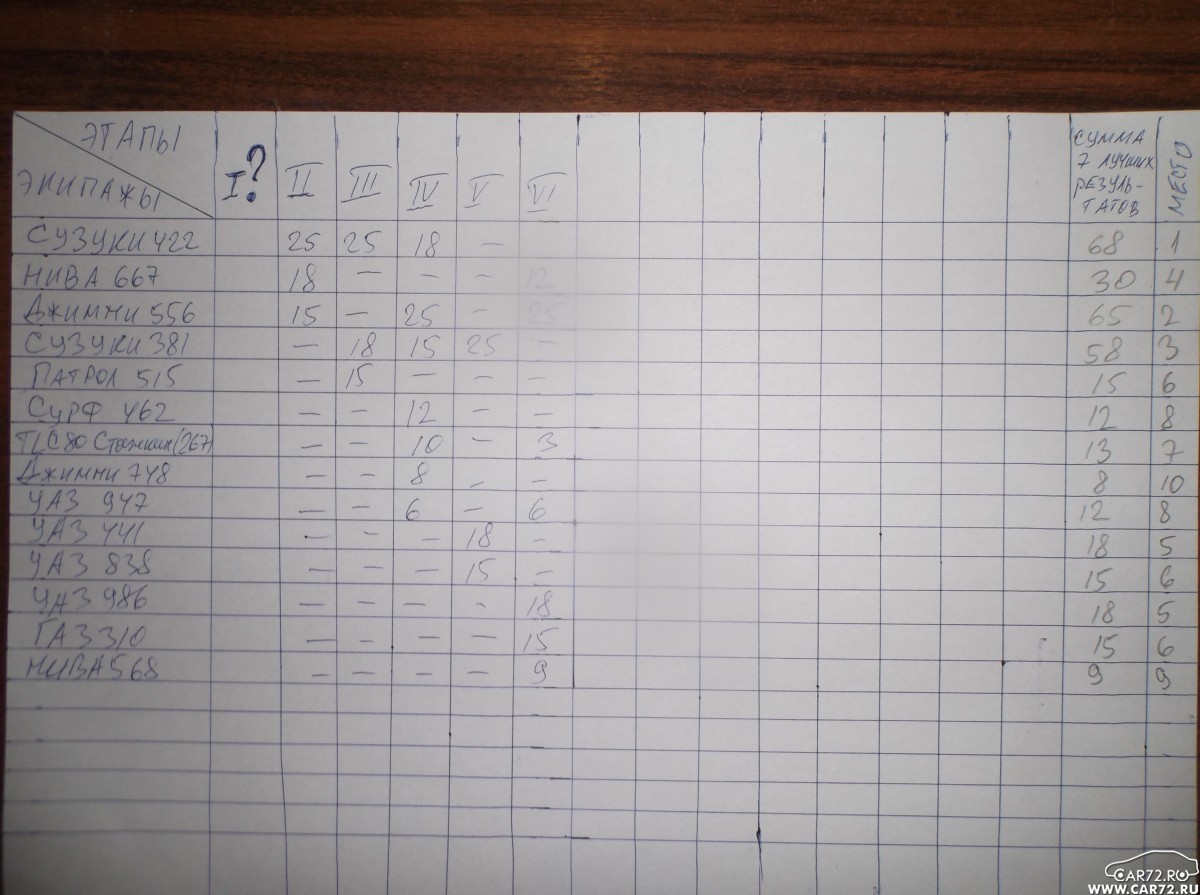 ЭТАПЫ
ЭКИПАЖЫ
I? II III IV V VI
СУММА
7 ЛУЧШИХ
РЕЗУЛЬ-
ТАТОВ
МЕСТО
СУЗУКИ 422 25 25 18 – 68 1
НИВА 667 18 – – – 12 30 4
Джимни 556 15 – 25 – 25 65 2
СУЗУКИ 381 – 18 15 25 – 58 3
ПАТРОЛ 515 – 15 – – – 15 6
СУРФ 462 – – 12 – – 12 8
TLC80 (267) – – 10 – 3 13 7
Джимни 748 – – 8 – – 8 10
УАЗ 947 – – 6 – 6 12 8
УАЗ 441 – – – 18 – 18 5
УАЗ 838 – – – 15 – 15 6
УАЗ 986 – – – - 18 18 5
ГАЗ 310 – – – – 15 15 6
НИВА 568 – – – – 9 9 9
CAR72.RU
WWW.CAR72.RU